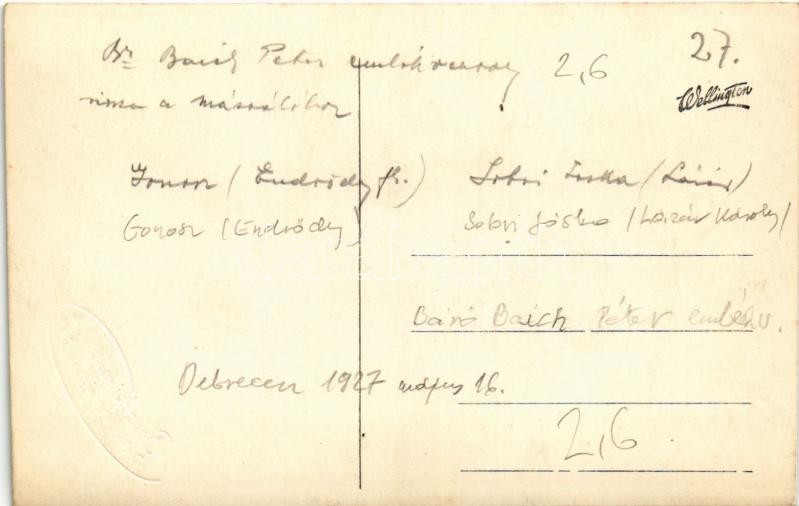 Br. Baich Péter emlékverseny 2,6 27.
Wellington
vissza a
Gonosz / Endrődy fr.)
Sobri Jóska / Lázár)
Gonosz / Endrődy
Sobri Jóska / Lázár Károly /
Báró Baich Péter emlékv.
Debrecen 1927 május 16.
2,6